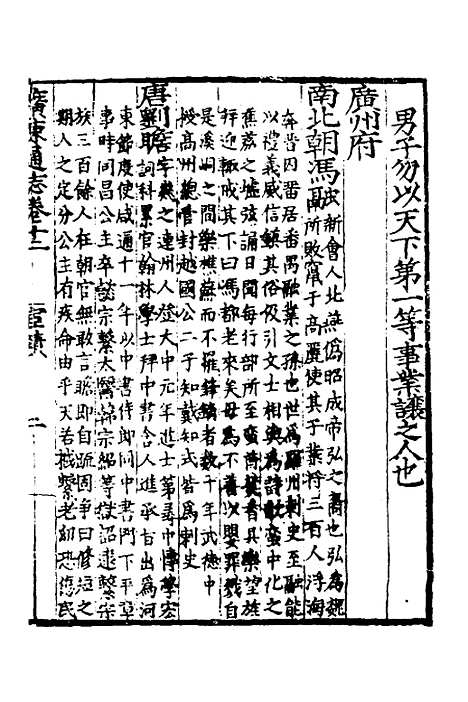 男子勿以天下第一等事業讓之人也
廣州府
南北朝馮融新會人北燕僞昭成帝弘之裔也弘爲魏
所敗竄于高麗使其子業將三百人浮海
奔晉因留居番禺融業之孫也世爲羅州刺史至融能
以禮義威信鎮其俗汲引文士相與爲詩歌蠻中化之
蕉荔之墟弦誦日聞每行部所至蠻酋焚香具樂望旌
拜迎輒戒其下曰馮都老來矣毋爲不善以嬰罪戮自
是溪峒之間樂樵蘇而不罹鋒鏑者數千年武德中
授高州總管封越國公二子知戴知式皆爲刺史
唐劉瞻字幾之連州人登大中元年進士第尋中博學宏
詞科累官翰林學士拜中書舍人進承旨出爲河
東節度使咸通十一年以中書侍郎同中書門下平章
事時同昌公主卒懿宗繫太醫韓宗紹等獄詔逮繫宗
族三百餘人在朝官無敢言瞻即自疏固爭曰修短之
期人之定分公主有疾命由乎天若械繫老幼恐傷民
廣東通志卷十三 宦蹟 二